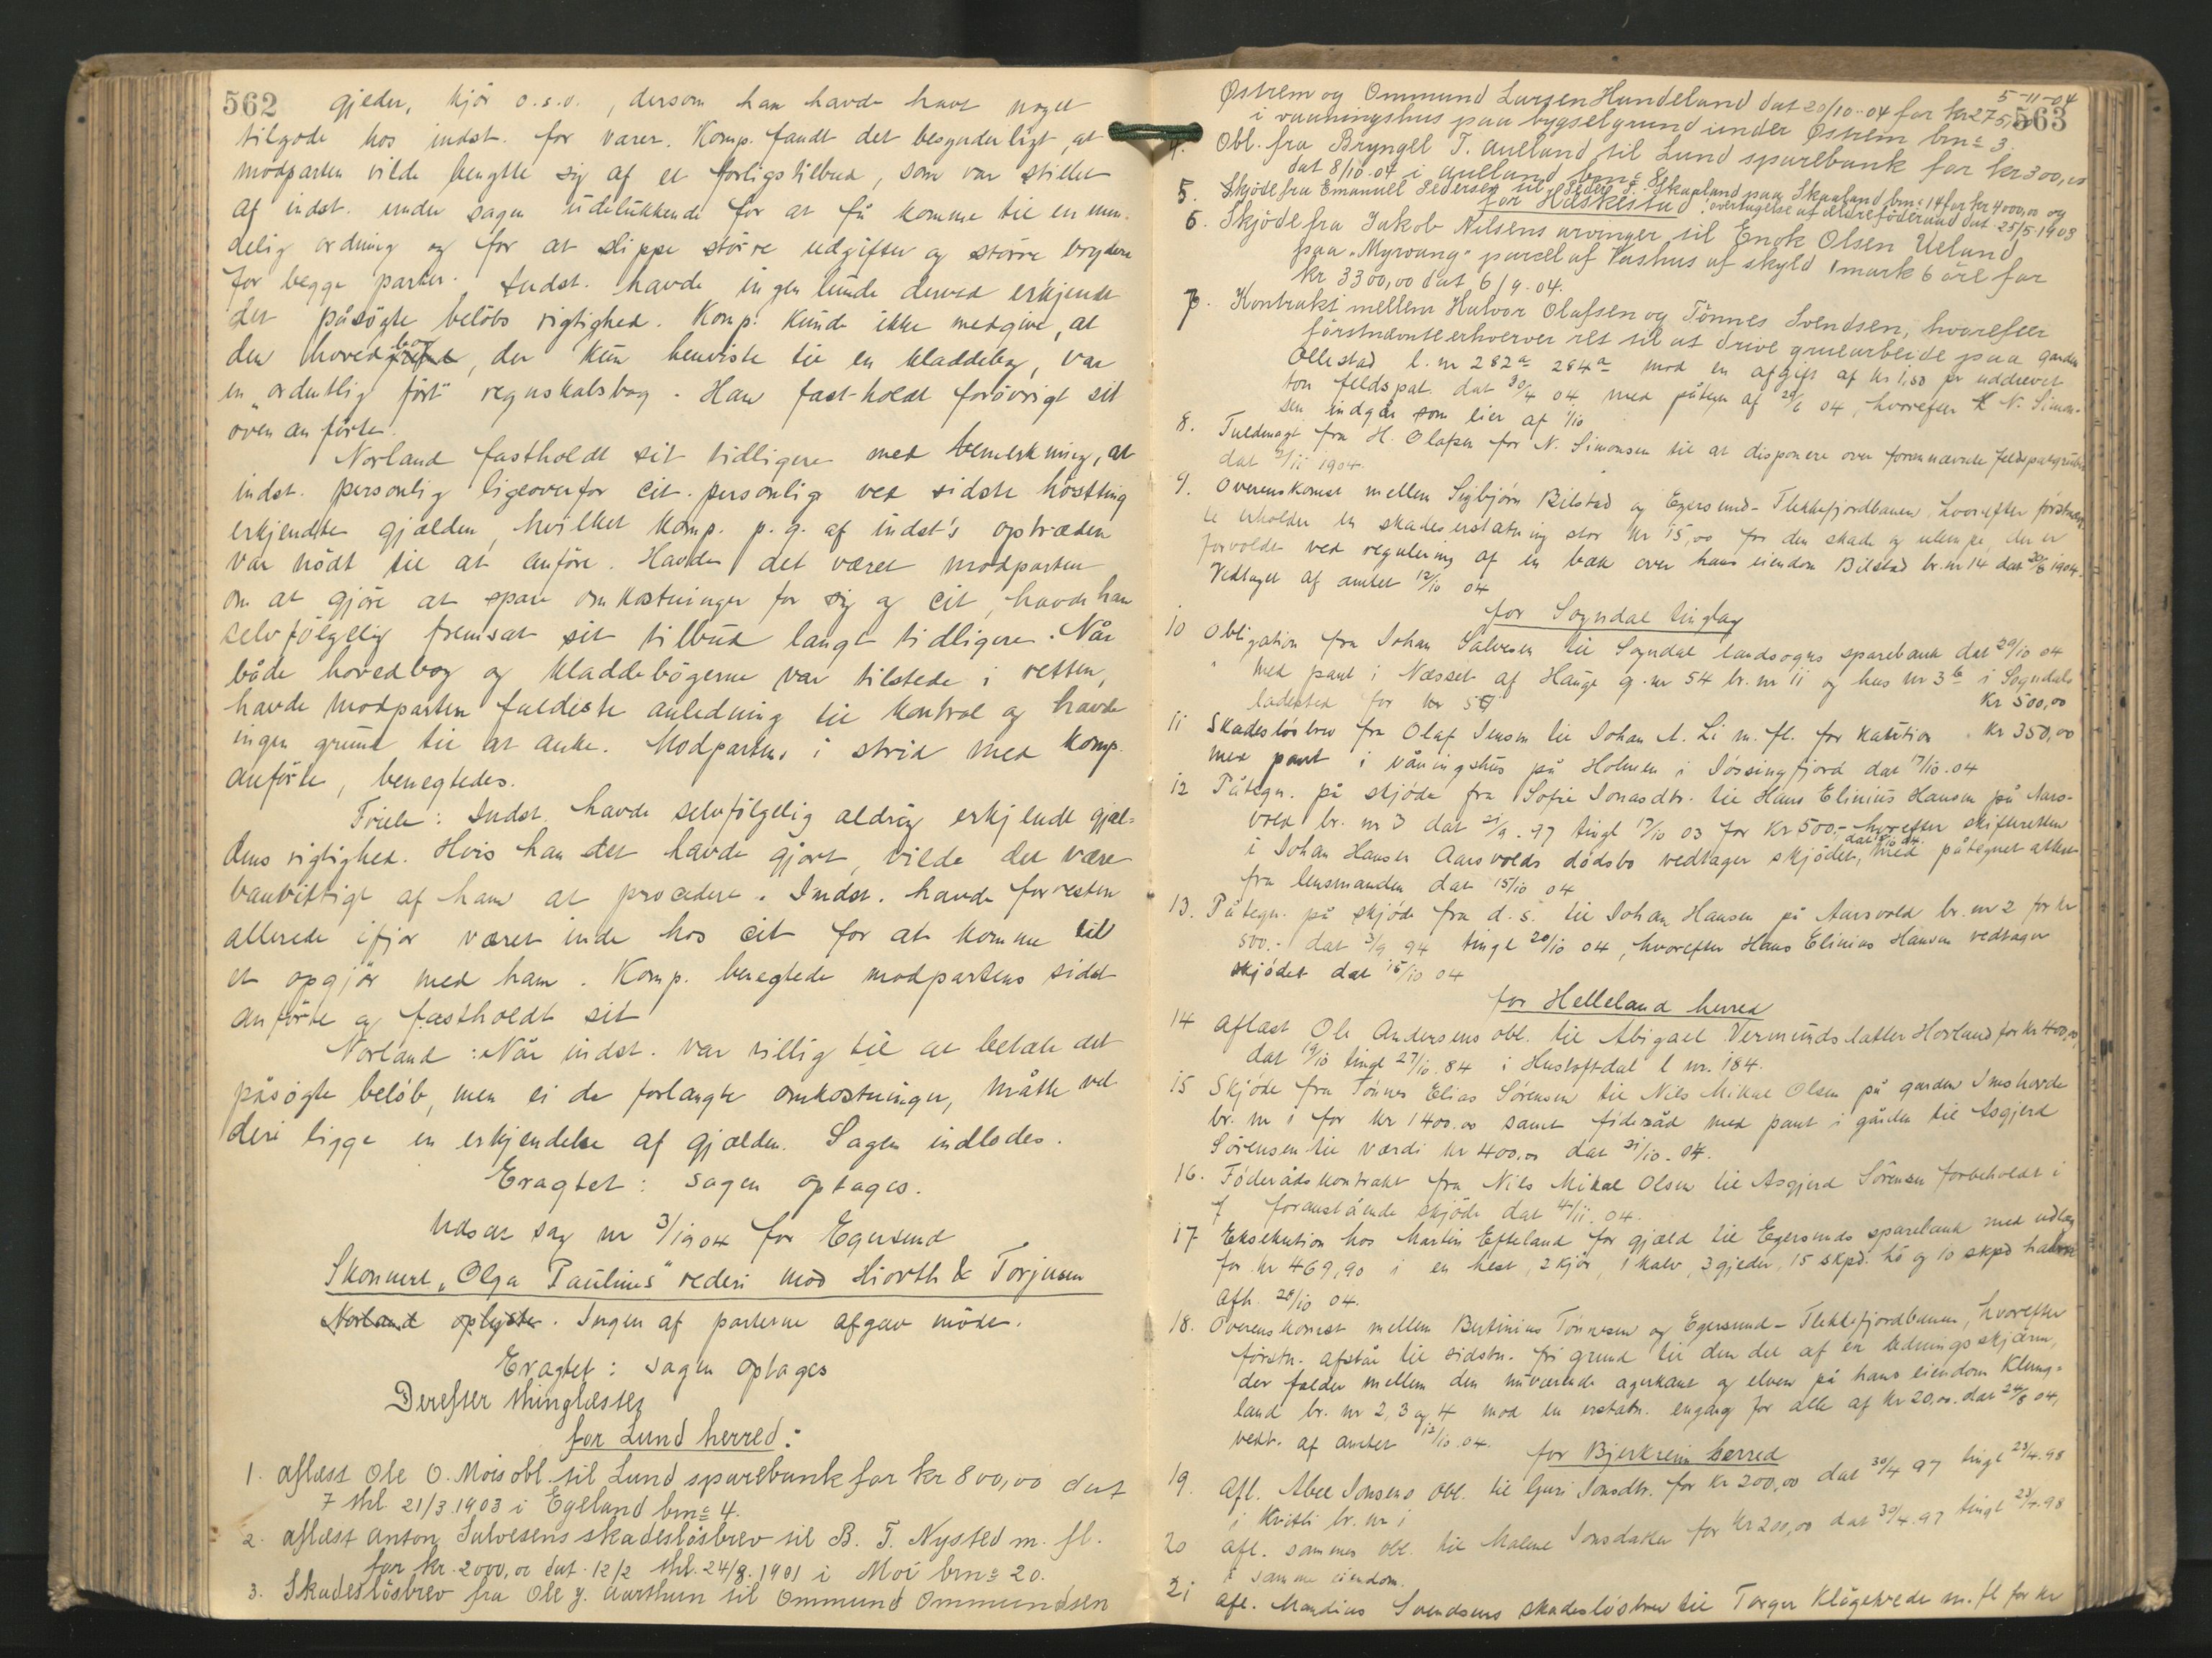 562 gjeder, kjör o.s.v., dersom han havde havt noget
tilgode hos indst. for varer. Komp. fandt det besynderligt, at
modparten vilde benytte sig af et forligstilbud, som var stillet
af indst. under sagen udelukkende for at få komme til en min-
delig ordning og for at slippe större udgifter og större bryderi
for begge parter. Indst. havde ingenlunde derved erkjendt
det påsögte belöbs rigtighed. Komp. kunde ikke medgive, at
den hovedbog, der kun henviste til en kladdebog, var
en "ordentlig fört" regnskabsbog. Han fast-holdt forövrigt sit
oven anförte.
Norland fastholdt sit tidligere med bemerkning, at
indst. personlig ligeoverfor cit. personlig ved sidste höstting
erkjendte gjælden, hvilket komp. p. g. af indst's optræden
var nödt til at anföre. Havde det været modparten
om at gjöre at spare omkostninger for sig og cit, havde han
selvfölgelig fremsat sit tilbud langt tidligere. Når
både hovedbog og kladdebögerne var tilstede i retten,
havde modparten fuldeste anledning til kontrol og havde
ingen grund til at anke. Modpartens i strid med komp.
anförte, benegtedes.
Feiele: Indst. havde selvfölgelig aldrig erkjendt gjæl-
dens rigtighed. Hvis han det havde gjort, vilde det være
vanvittigt af ham at procedere. Indst. havde forresten
allerede ifjor været inde hos cit for at komme til
et opgjör med ham. Komp. benegtede modpartens sidst
anförte og fastholdt sit
Norland: Når indst. var villig til at betale det
påsögte belöb, men ei de forlangte omkostninger, måtte vel
deri ligge en erkjendelse af gjælden. Sagen indlodes.
Eragtet: sagen optages.
Udsat sag nr 3/1904 for Egersund
Skonnert "Olga Pauline's" rederi mod Hiorth & Torjusen
Norland oplyste. Ingen af parterne afgav möde.
Eragtet: sagen optages
Derefter thinglæstes
for Lund herred:
1. aflæst Ole O. Mois obl. til Lund sparebank for kr 800,00 dat
7 thl. 21/3.1903 i Egeland brn= 4.
2. aflæst Anton Salvesens skadeslösbrev til B. T. Nysted m. fl.
for kr. 2000,00 dat. 12/2 thl. 24/8.1901 i Moi brn= 20.
3. Skadeslösbrev fra Ole J. Aarthun til Ommund Ommundsen
5-11-04
563
Østrem og Ommund Larsen Hundeland dat 20/10-04 for kr 275,00
i vaaningshus paa bygselgrund under Østrem brn= 3.
4. Obl. fra Bryngel T. Aueland til Lund sparebank for kr 300,00
dat 8/10 04 i Aueland brn= 8.
5. Skjöde fra Emanuel Pedersen til Peder T. Skaaland paa Skaaland brn= 14 for kr 4000,00 og
overtagelse af ældre föderaad dat 25/5.1903
for Heskestad:
6. Skjöde fra Jakob Nilsens arvinger til Enok Olsen Ueland
paa "Myrvang" parcel af Vashus af skyld 1 mark 6 öre for
kr 3300,00 dat 6/9.04.
7. Kontrakt mellem Halvor Olafsen og Tönnes Svendsen, hvorefter
förstnævnte erhverver ret til at drive grubearbeide paa garden
Ollestad l. nr 282a 284a mod en afgift af kr 1,50 pr uddrevet
ton feldspat. dat 30/4 04 med påtegn af 29/6 04, hvorefter N. Simon-
sen indgår som eier af 1/10
8. Fuldmagt fra H. Olafsen for N. Simonsen til at disponere over forannævnte feldspatgruber
dat 3/11 1904.
9. Overenskomst mellem Sigbjörn Bilstad og Egersund-Flekkefjordbanen, hvorefter förstnævn-
te erholder en skadeserstatning stor kr 15,00 for den skade og ulempe, der er
forvoldt ved regulering af en bæk over hans eiendom Bilstad br. nr 14 dat 20/6 1904.
Vedtaget af amtet 12/10 04
for Sogndal tinglag
10 Obligation fra Johan Salvesen til Sogndal landsogns sparebank dat 20/10 04
med pant i Næsset af Hauge g. nr 54 br. nr 11 og hus nr 3b i Sogndals
ladested for kr 50 Kr 500,00
11 Skadeslösbrev fra Olaf Jensen til Johan A. Li m. fl. for kaution kr 350,00
med pant i våningshus på Holmen i Jössingfjord dat 17/10.04
12 Påtegn. på skjöde fra Sofie Jonasdtr. til Hans Elinius Hansen på Aars-
vold br. nr 3 dat 21/9.97 tingl 17/10 03 for kr 500,- hvorefter skifteretten
i Johan Hansen Aarsvolds dödsbo vedtager skjödet, med påtegnet attest
fra lensmanden dat 15/10 04
13. Påtegn. på skjöde fra d. s. til Johan Hansen på Aarsvold br. nr 2 for kr
500.- dat 3/9 94 tingl 20/10 04, hvorefter Hans Elinius Hansen vedtager
skjödet dat 15/10 04
for Helleland herred
14 Aflæst Ole Andersens obl. til Abigael Vermundsdatter Hovland for kr 400,00,
dat 19/10 tingl 27/10.84 i Hustoftdal l nr. 184.
15 Skjöde fra Tönnes Elias Sörensen til Nils Mikal Olsen på garden Imshovde
br. nr 1 for kr 1400.00 samt föderåd med pant i gården til Asgjerd
Sörensen til værdi kr 400.00 dat 31/10.04.
16. Föderådskontrakt fra Nils Mikal Olsen til Asgjerd Sörensen forbeholdt i
f foranstående skjöde dat 4/11.04.
17 Eksekution hos Martin Efteland for gjæld til Egersunds sparebank med udlæg
for kr 469,90 i en hest, 2 kjör, 1 kalv, 3 gjeder, 15 skpd. hö og 10 skpd halm
afh. 28/10 04.
18. Overenskomst mellem Bertinius Tönnesen og Egersund-Flekkefjordbanen, hvorefter
förstn. afstår til sidstn. fri grund til den del af en ledningsskjæring,
der falder mellem den nuværende agerkant og elven på hans eiendom Klung-
land br. nr 2, 3 og 4 mod en erstatn. engang for alle af kr 20,00. dat 24/8 04,
vedt. af amtet 12/10.04.
for Bjerkreim herred
19. Afl. Abel Jonsens obl. til Guri Jonsdtr. for kr 200,00 dat 30/4 97 tingl 23/4.98
i Kvitli br. nr 1
20 Afl. sammes obl. til Malene Jonsdatter for kr 200,00 dat 30/4.97 tingl 23/4.98
i samme eiendom.
21 Afl. Mandius Svendsens skadeslösbrev til Torger Klögetvede m. fl for kr